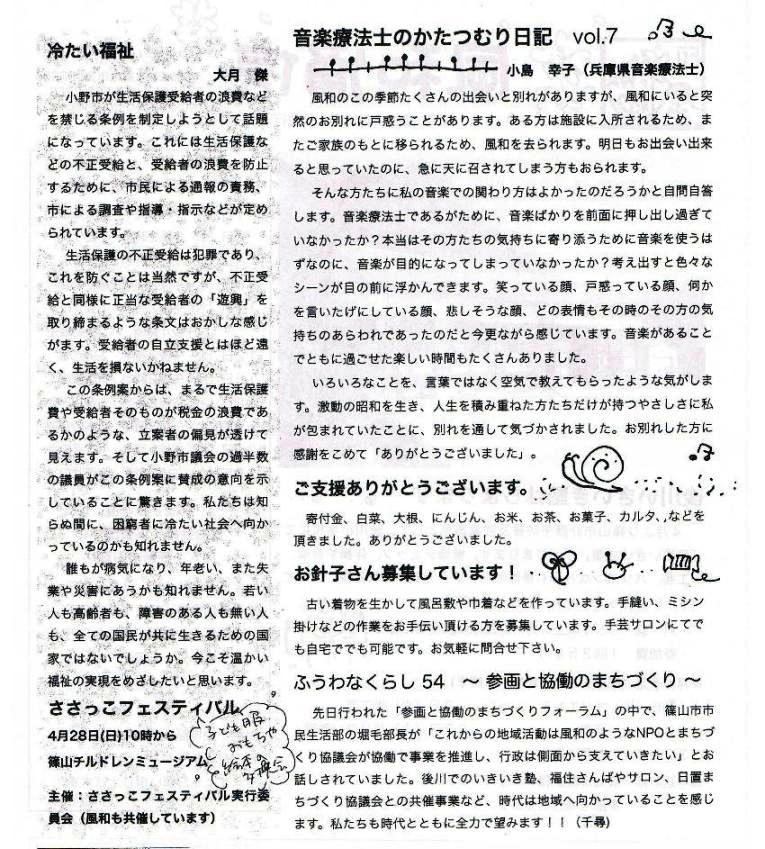 冷たい福祉
大月　傑
　小野市が生活保護受給者の浪費など
を禁じる条例を制定しようとして話題
になっています。これには生活保護な
どの不正受給と、受給者の浪費を防止
するために、市民による通報の責務、
市による調査や指導・指示などが定め
られています。
　生活保護の不正受給は犯罪であり、
これを防ぐことは当然ですが、不正受
給と同様に正当な受給者の「遊興」を
取り締まるような条文はおかしな感じ
がます。受給者の自立支援とはほど遠
く、生活を損ないかねません。
　この条例案からは、まるで生活保護
費や受給者そのものが税金の浪費であ
るかのような、立案者の偏見が透けて
見えます。そして小野市議会の過半数
の議員がこの条例案に賛成の意向を示
していることに驚きます。私たちは知
らぬ間に、困窮者に冷たい社会へ向か
っているのかも知れません。
　誰もが病気になり、年老い、また失
業や災害にあうかも知れません。若い
人も高齢者も、障害のある人も無い人
も、全ての国民が共に生きるための国
家ではないでしょうか。今こそ温かい
福祉の実現をめざしたいと思います。
ささっこフェスティバル
4月28日(日)10時から
篠山チルドレンミュージアム
子ども服
おもちゃ
絵本の
交換会
主催：ささっこフェスティバル実行委
員会（風和も共催しています）
音楽療法士のかたつむり日記　vol.7
小島　幸子（兵庫県音楽療法士）
　風和のこの季節たくさんの出会いと別れがありますが、風和にいると突
然のお別れに戸惑うことがあります。ある方は施設に入所されるため、ま
たご家族のもとに移られるため、風和を去られます。明日もお出会い出来
ると思っていたのに、急に天に召されてしまう方もおられます。
　そんな方たちに私の音楽での関わり方はよかったのだろうかと自問自答
します。音楽療法士であるがために、音楽ばかりを前面に押し出し過ぎて
いなかったか？本当はその方たちの気持ちに寄り添うために音楽を使うは
ずなのに、音楽が目的になってしまっていなかったか？考え出すと色々な
シーンが目の前に浮かんできます。笑っている顔、戸惑っている顔、何か
を言いたげにしている顔、悲しそうな顔、どの表情もその時のその方の気
持ちのあらわれであったのだと今更ながら感じています。音楽があること
でともに過ごせた楽しい時間もたくさんありました。
　いろいろなことを、言葉ではなく空気で教えてもらったような気がしま
す。激動の昭和を生き、人生を積み重ねた方たちだけが持つやさしさに私
が包まれていたことに、別れを通して気づかされました。お別れした方に
感謝をこめて「ありがとうございました」。
ご支援ありがとうございます。
　寄付金、白菜、大根、にんじん、お米、お茶、お菓子、カルタ、,などを
頂きました。ありがとうございました。
お針子さん募集しています！
　古い着物を生かして風呂敷や巾着などを作っています。手縫い、ミシン
掛けなどの作業をお手伝い頂ける方を募集しています。手芸サロンにてで
も自宅ででも可能です。お気軽に問合せ下さい。
ふうわなくらし 54　～ 参画と協働のまちづくり ～
　先日行われた「参画と協働のまちづくりフォーラム」の中で、篠山市市
民生活部の堀毛部長が「これからの地域活動は風和のようなNPOとまちづ
くり協議会が協働で事業を推進し、行政は側面から支えていきたい」とお
話しされていました。後川でのいきいき塾、福住さんばやサロン、日置ま
ちづくり協議会との共催事業など、時代は地域へ向かっていることを感じ
ます。私たちも時代とともに全力で望みます！！（千尋）